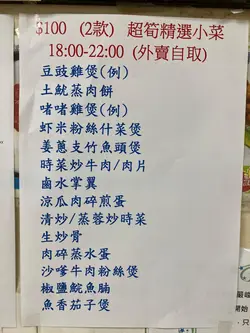 $100 (2款) 超筍精選小菜
18:00-22:00 (外賣自取)
豆豉雞煲(例)
土魷蒸肉餅
啫啫雞煲(例)
虾米粉絲什菜煲
姜蔥支竹魚頭煲
時菜炒牛肉/肉片
鹵水掌翼
涼瓜肉碎煎蛋
清炒/蒸蓉炒時菜
生炒骨
肉碎蒸水蛋
沙嗲牛肉粉絲煲
椒鹽鯇魚腩
魚香茄子煲